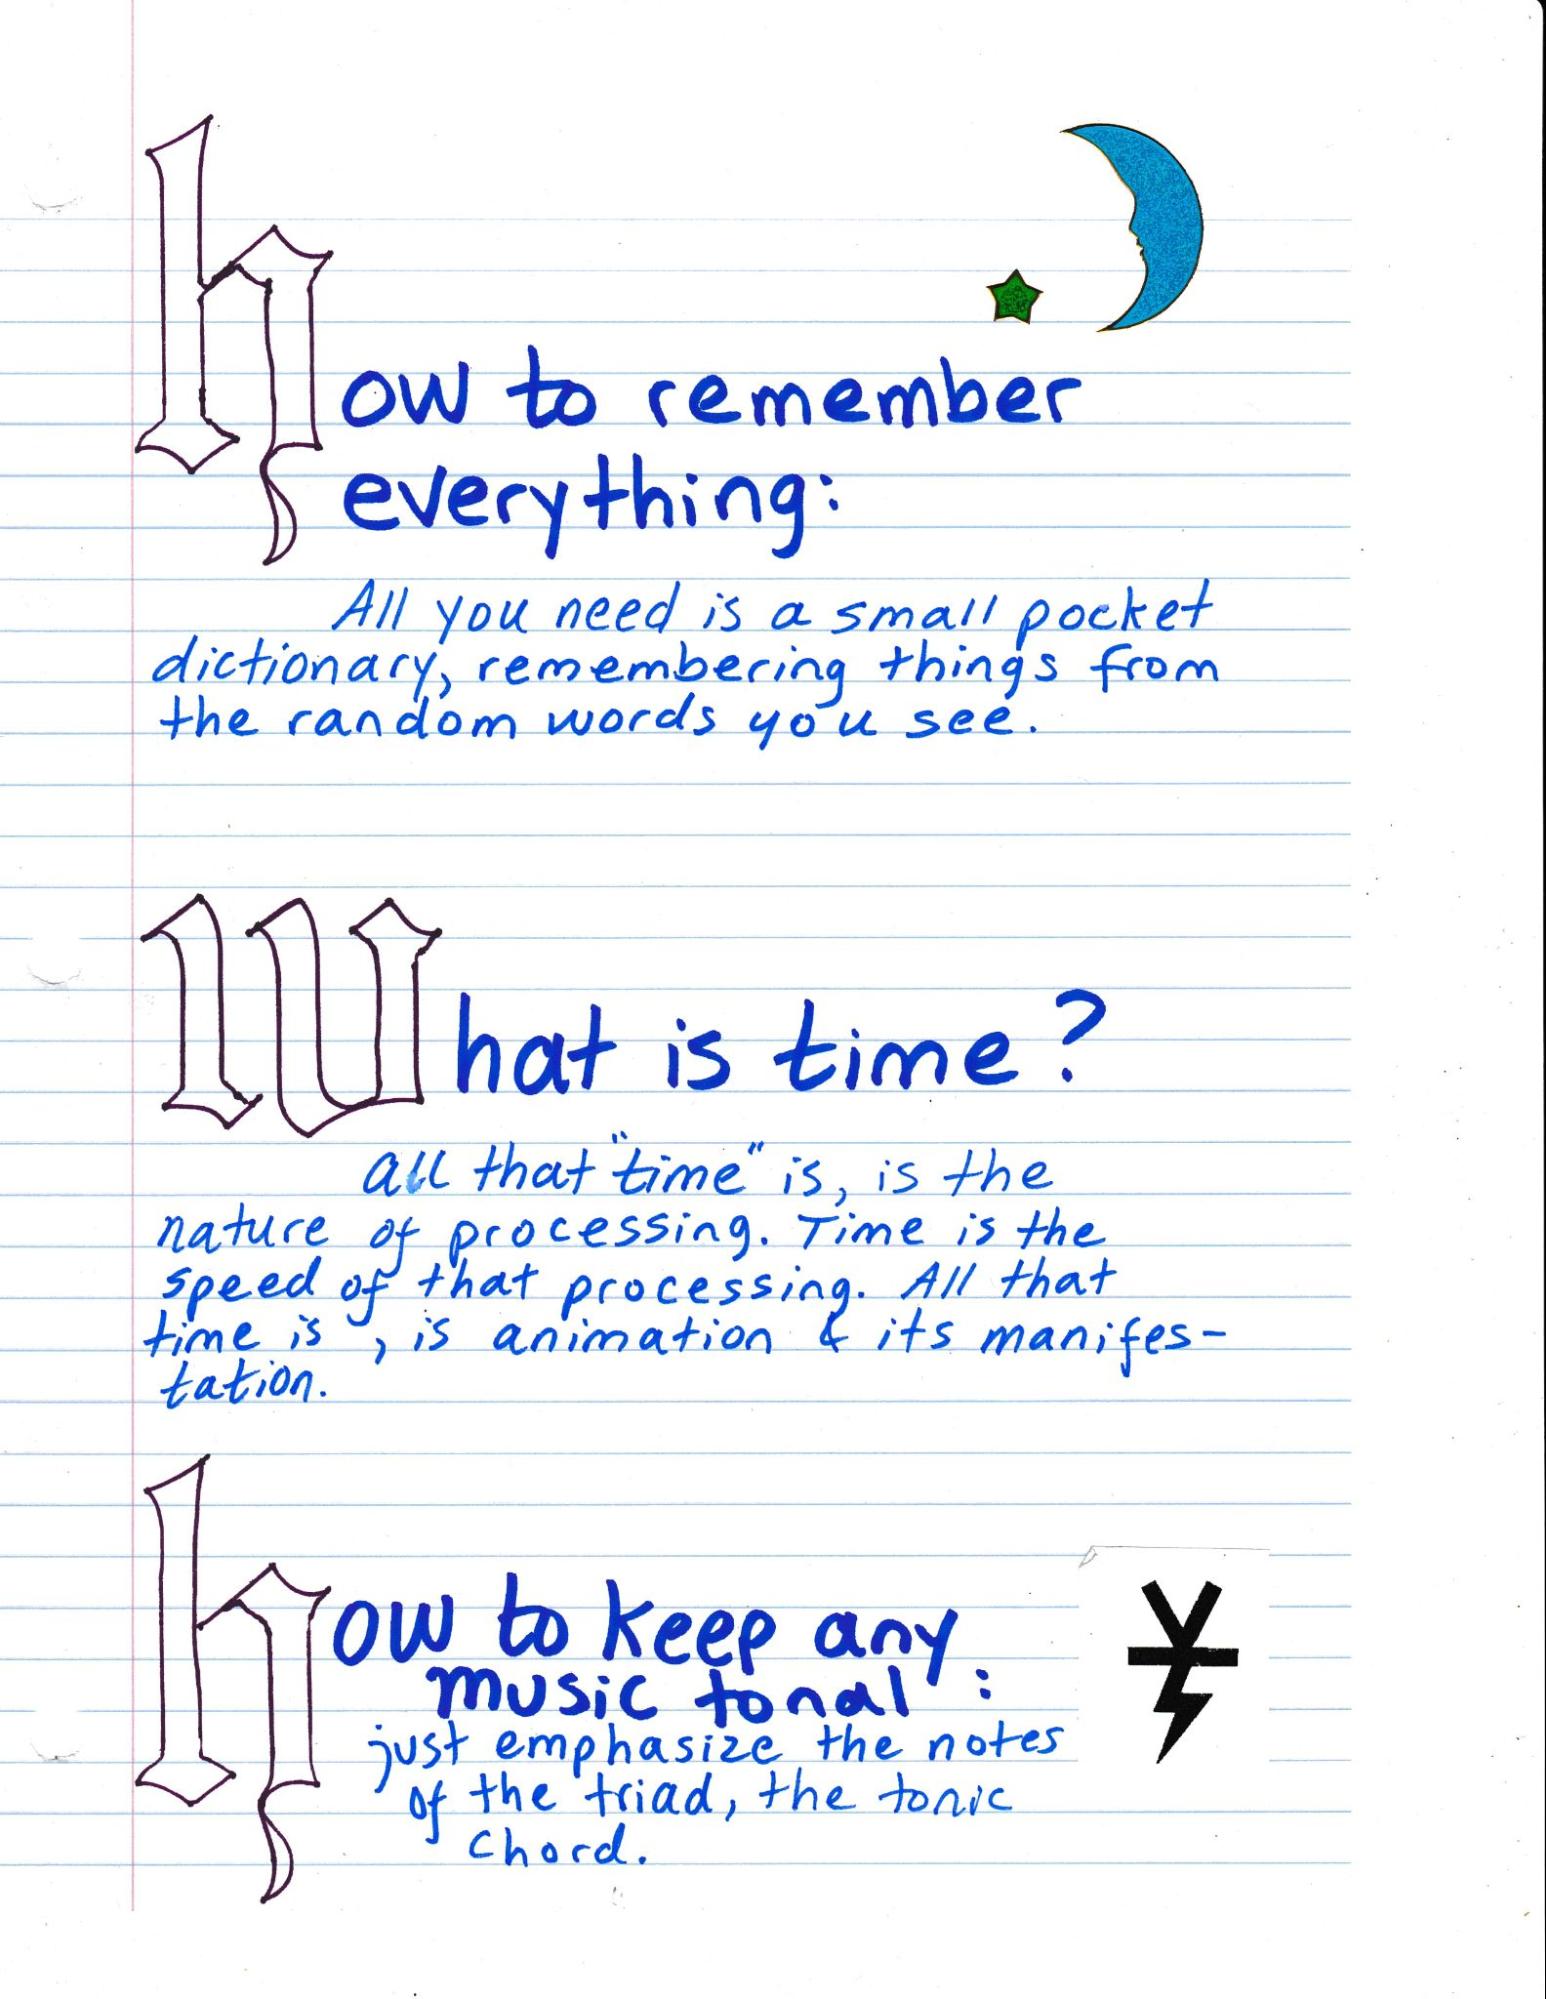 How to remember
everything:
All you need is a small pocket
dictionary, remembering things from
the random words you see.
What is time?
all that "time" is, is the
nature of processing. Time is the
speed of that processing. All that
time is, is animation & its manifes-
tation.
How to keep any
music tonal:
just emphasize the notes
of the triad, the tonic
chord.